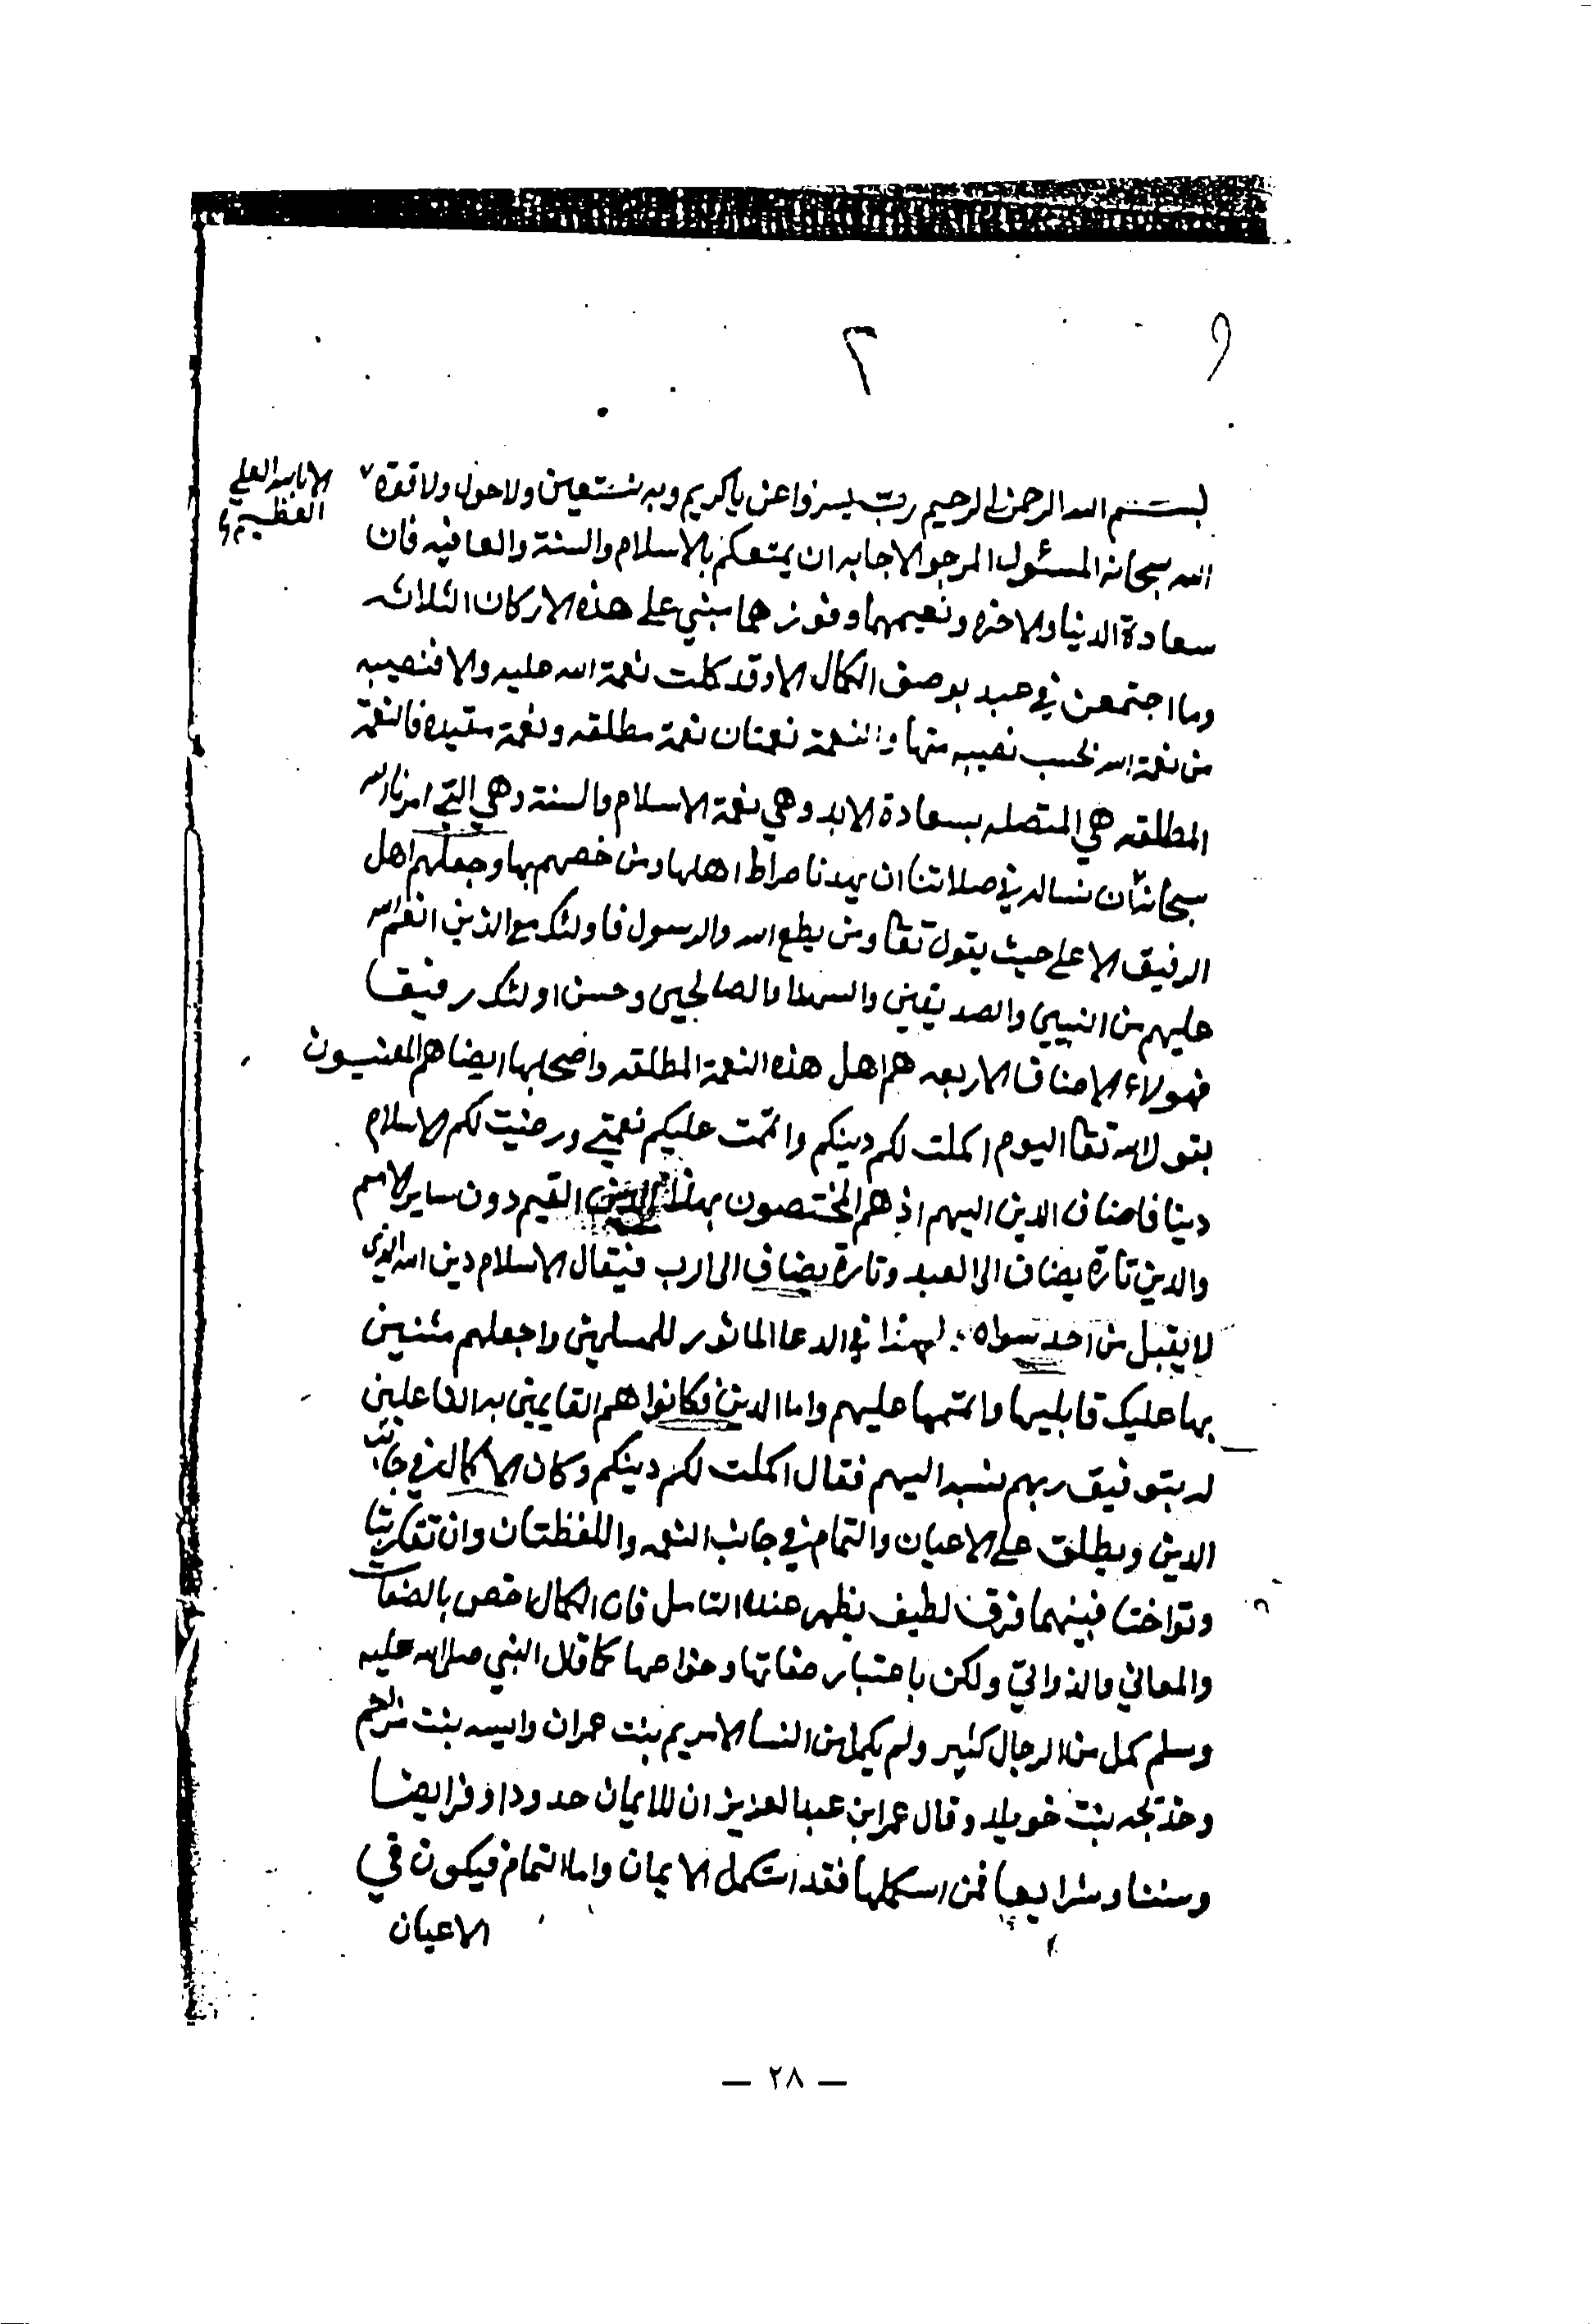 ٢
بسم الله الرحمن الرحيم رب يسر واعن ياكريم وبه نستعين ولا حول ولا قوة
الا بالله العلي
العظيم
الله سبحانه المسئول المرجو الاجابه ان يمتعكم بالاسلام والسنة والعافيه فان
سعادة الدنيا والاخره ونعيمهما وفوزهما مبني على هذه الاركان الثلاثه
وما اجتمعن في عبد بوصف الكمال الا وقد كملت نعمة الله عليه والا فنصيبه
من نعمة الله بحسب نصيبه منها والنعمة نعمتان نعمة مطلقه ونعمة مقيده فالنعمة
المطلقه هي المتصله بسعادة الابد وهي نعمة الاسلام والسنة وهي التي امرنا الله
سبحانه ان نساله في صلاتنا ان يهدنا صراط اهلها ومن خصهم بها وجعلهم اهل
الرفيق الاعلى حيث يقول تعا ومن يطع الله والرسول فاولئك مع الذين انعم الله
عليهم من النبيين والصديقين والشهدا والصالحين وحسن اولئك رفيقا
فهولاء الاصناف الاربعه هم اهل هذه النعمة المطلقه واصحابها ايضا هم المعنيون
بقول الله تعا اليوم اكملت لكم دينكم واتممت عليكم نعمتي ورضيت لكم الاسلام
دينا فاضاف الدين اليهم اذ هم المختصون بهذا الدين القيم دون ساير الامم
والدين تارة يضاف الى العبد وتارة يضاف الى الرب فيقال الاسلام دين الله الذي
لا يقبل من احد سواه لهذا في الدعا الماثور للمسلمين واجعلهم مثنين
بها عليك قابليها واتممها عليهم واما الدين فكانوا هم القايمين به الفاعلين
له بتوفيق ربهم نسبه اليهم فقال اكملت لكم دينكم وكان الاكمال في جانب
الدين ويطلق على الاعيان والتمام في جانب النعمه واللفظتان وان تقاربتا
وتواختا فبينهما فرق لطيف يظهر عند التامل فان الكمال اخص بالصفات
والمعاني والذواتي ولكن باعتبار صفاتها وخواصها كما قال النبي صلى الله عليه
وسلم كمل من الرجال كثير ولم يكمل من النسا الا مريم بنت عمران واسيه بنت مزاحم
وخديجه بنت خويلد وقال عمر ابن عبد العزيز ان للايمان حدودا وفرايضا
وسننا وشرايعا فمن استكملها فقد استكمل الايمان واما التمام فيكون في
الاعيان
— ٢٨ —